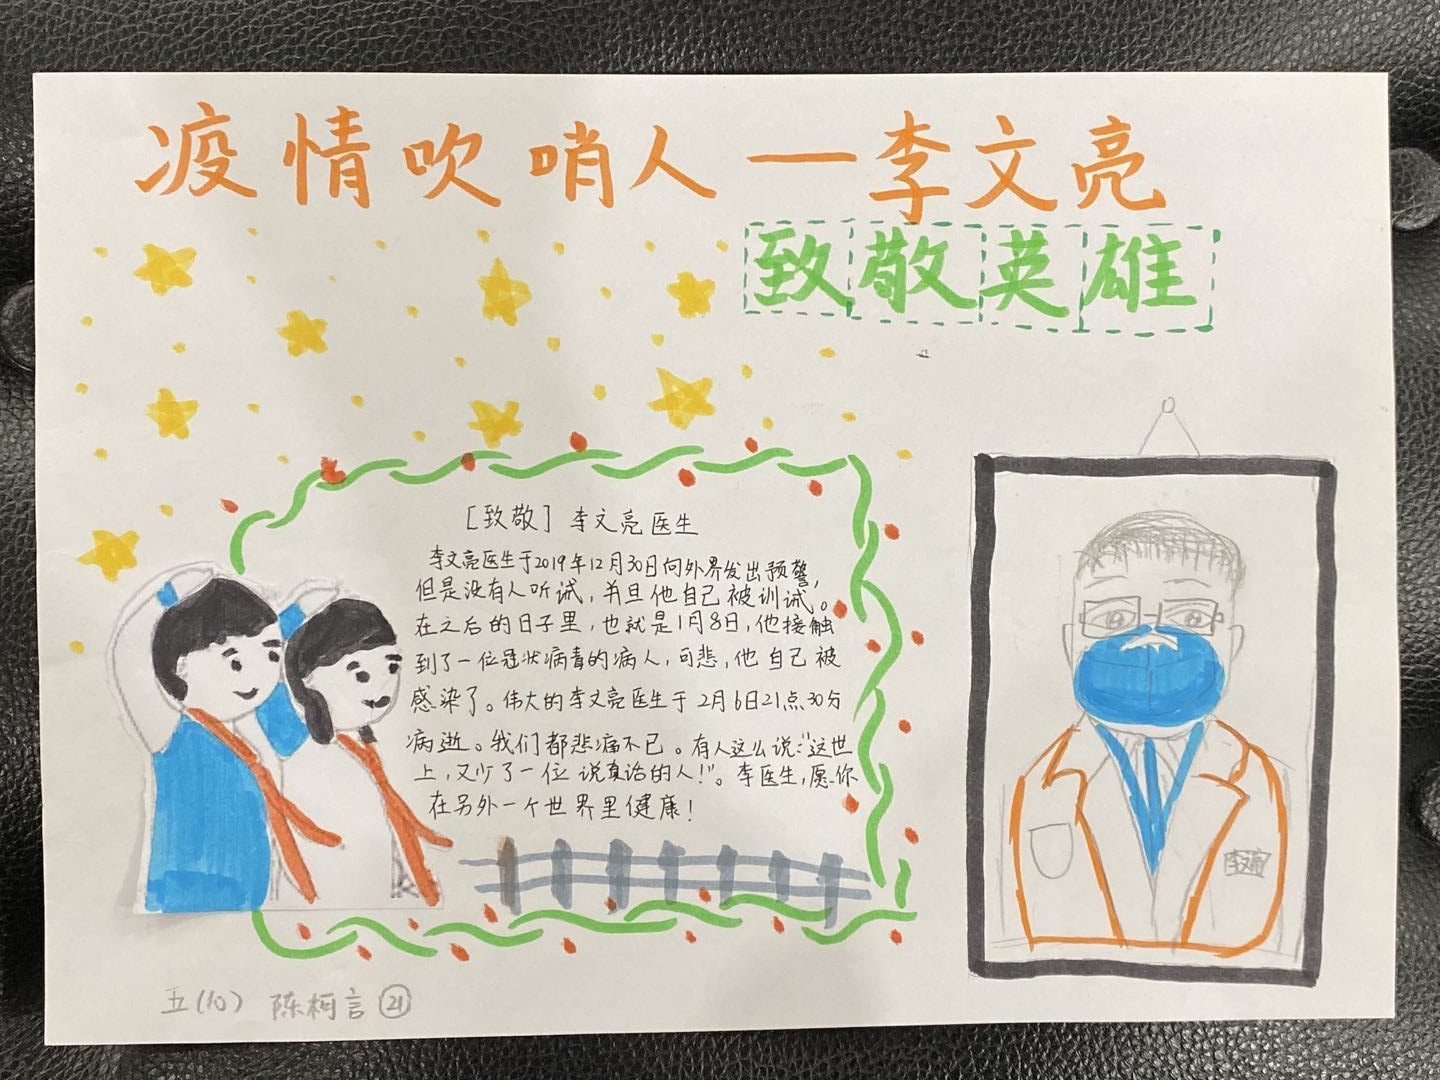 疫情吹哨人—李文亮
致敬英雄
[致敬] 李文亮医生
李文亮医生于2019年12月30日向外界发出预警,
但是没有人听诫,并且他自己被训诫。
在之后的日子里,也就是1月8日,他接触
到了一位冠状病毒的病人,可悲,他自己被
感染了。伟大的李文亮医生于2月6日21点30分
病逝。我们都悲痛不已。有人这么说:"这世
上,又少了一位说真话的人!"。李医生,愿你
在另外一个世界里健康!
李文亮
五(10) 陈柯言 21